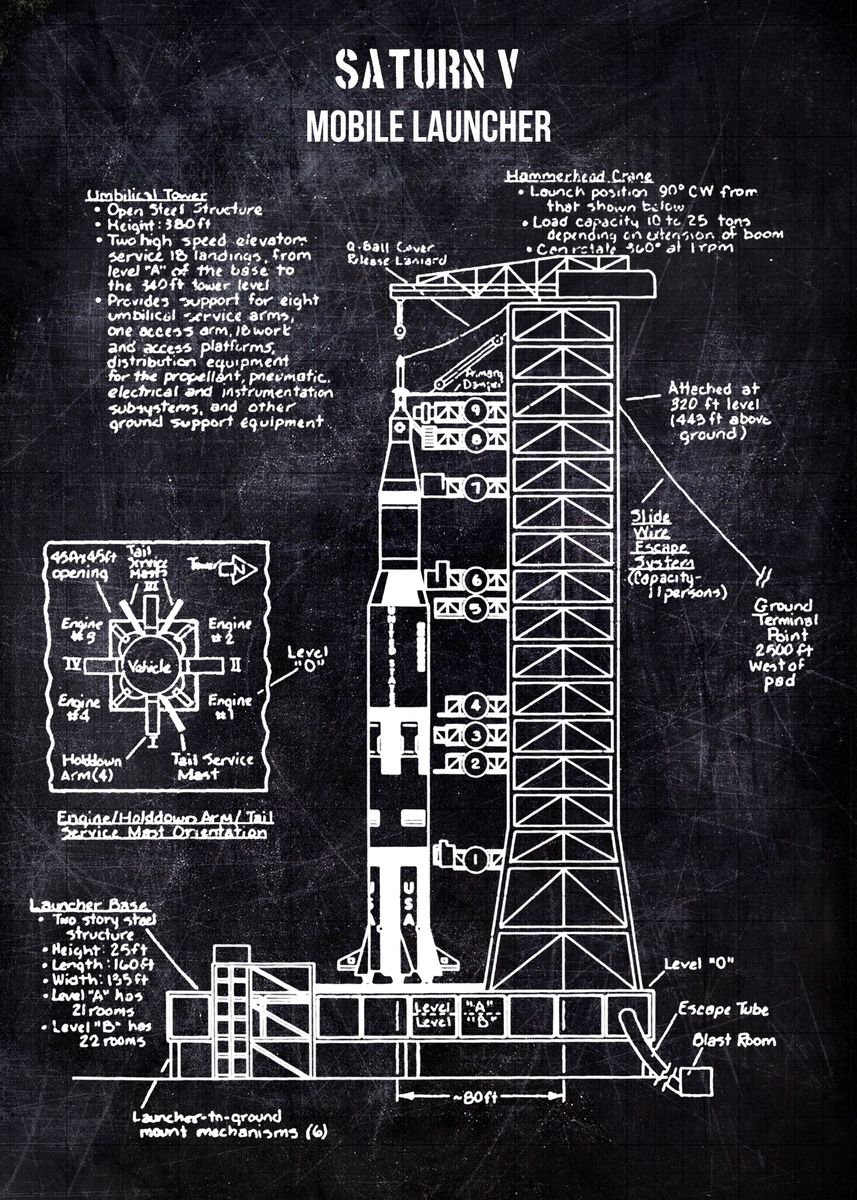 SATURN V
MOBILE LAUNCHER
Umbilical Tower
• Open Steel Structure
• Height: 380ft
• Two high speed elevators
service 18 landings, from
level "A" of the base to
the 340ft tower level
• Provides support for eight
umbilical service arms,
one access arm, 18 work
and access platforms,
distribution equipment
for the propellant, pneumatic,
electrical and instrumentation
subsystems, and other
ground support equipment
Hammerhead Crane
• Launch position 90° CW from
that shown below
• Load capacity 10 to 25 tons
depending on extension of boom
• Can rotate 360° at 1 rpm
Q-Ball Cover
Release Laniard
Primary
Damper
9
8
7
6
5
4
3
2
1
Attached at
320 ft level
(443 ft above
ground)
Slide
Wire
Escape
System
(Capacity-
11 persons)
Ground
Terminal
Point
2500 ft
West of
pad
45ft x 45ft
opening
Tail
Service
Masts
III
Tower
N
Engine
#3
Engine
#2
IV
Vehicle
II
Engine
#4
Engine
#1
I
Holddown
Arm(4)
Tail Service
Mast
Level
"O"
Engine/Holddown Arm/Tail
Service Mast Orientation
UNITED STATES
USA
USA
Launcher Base
• Two story steel
structure
• Height: 25ft
• Length: 160ft
• Width: 135ft
• Level "A" has
21 rooms
• Level "B" has
22 rooms
Level "O"
Level "A"
Level "B"
Escape Tube
Blast Room
~80ft
Launcher-to-ground
mount mechanisms (6)